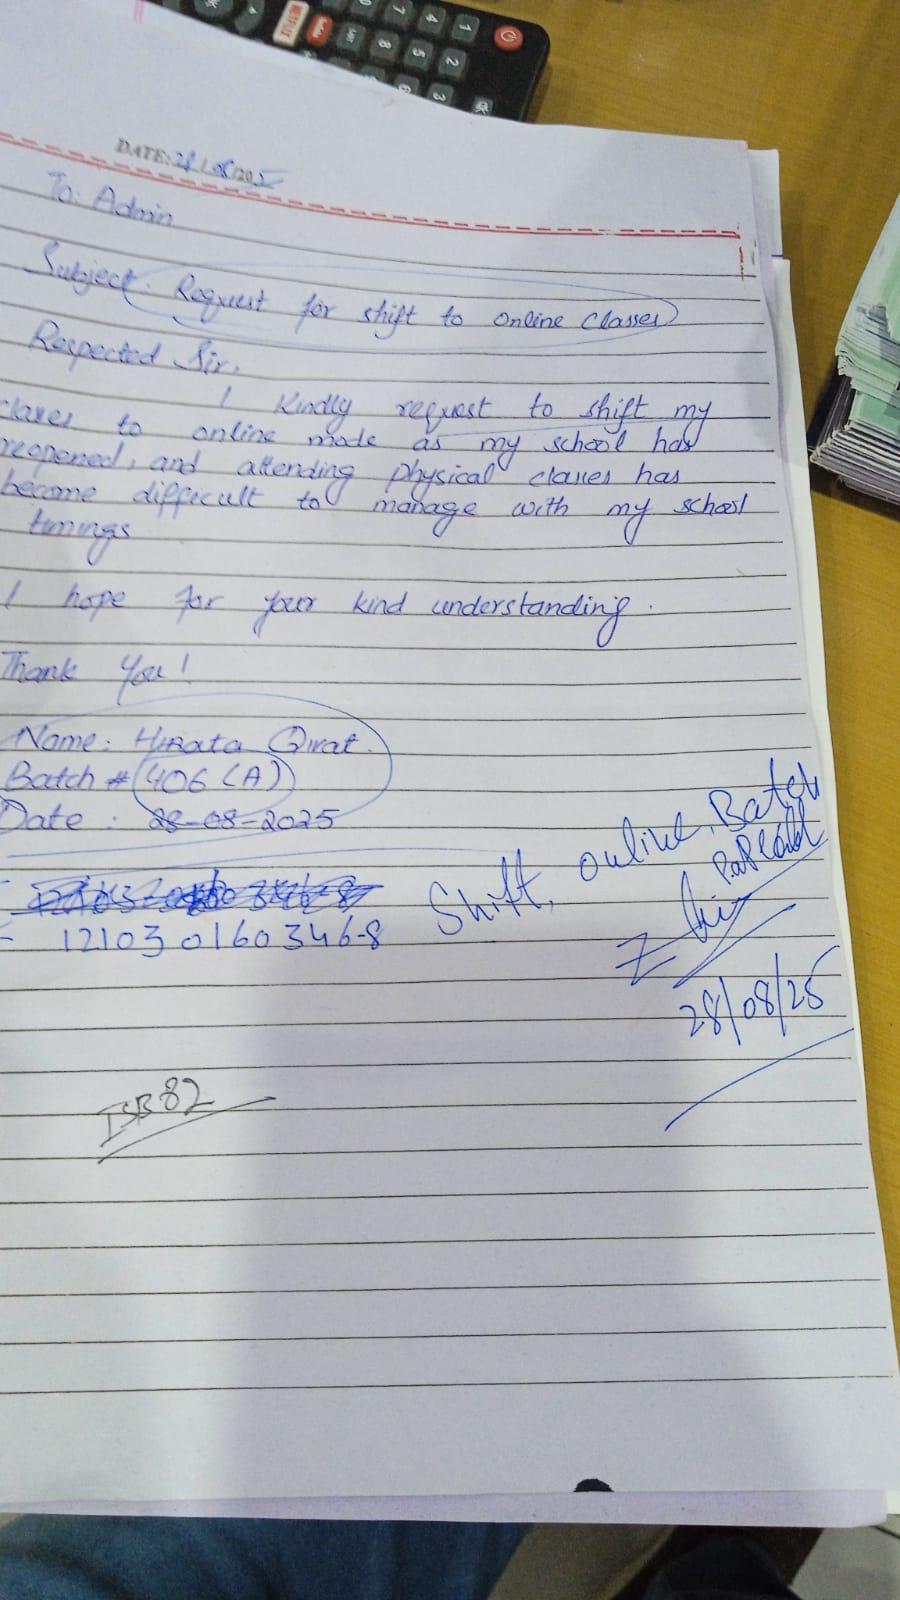 DATE: 28/08/2025
To: Admin
Subject: Request for shift to online classes
Respected Sir,
I kindly request to shift my
classes to online mode as my school has
reopened, and attending physical classes has
become difficult to manage with my school
timings
I hope for your kind understanding.
Thank You!
Name: Qirat
Batch # 406 (A)
Date: 28-08-2025
12103 0160346-8
Shift, online, Batch
28/08/25
ISB 82
NETFLIX
1
2
3
4
5
7
8
OK